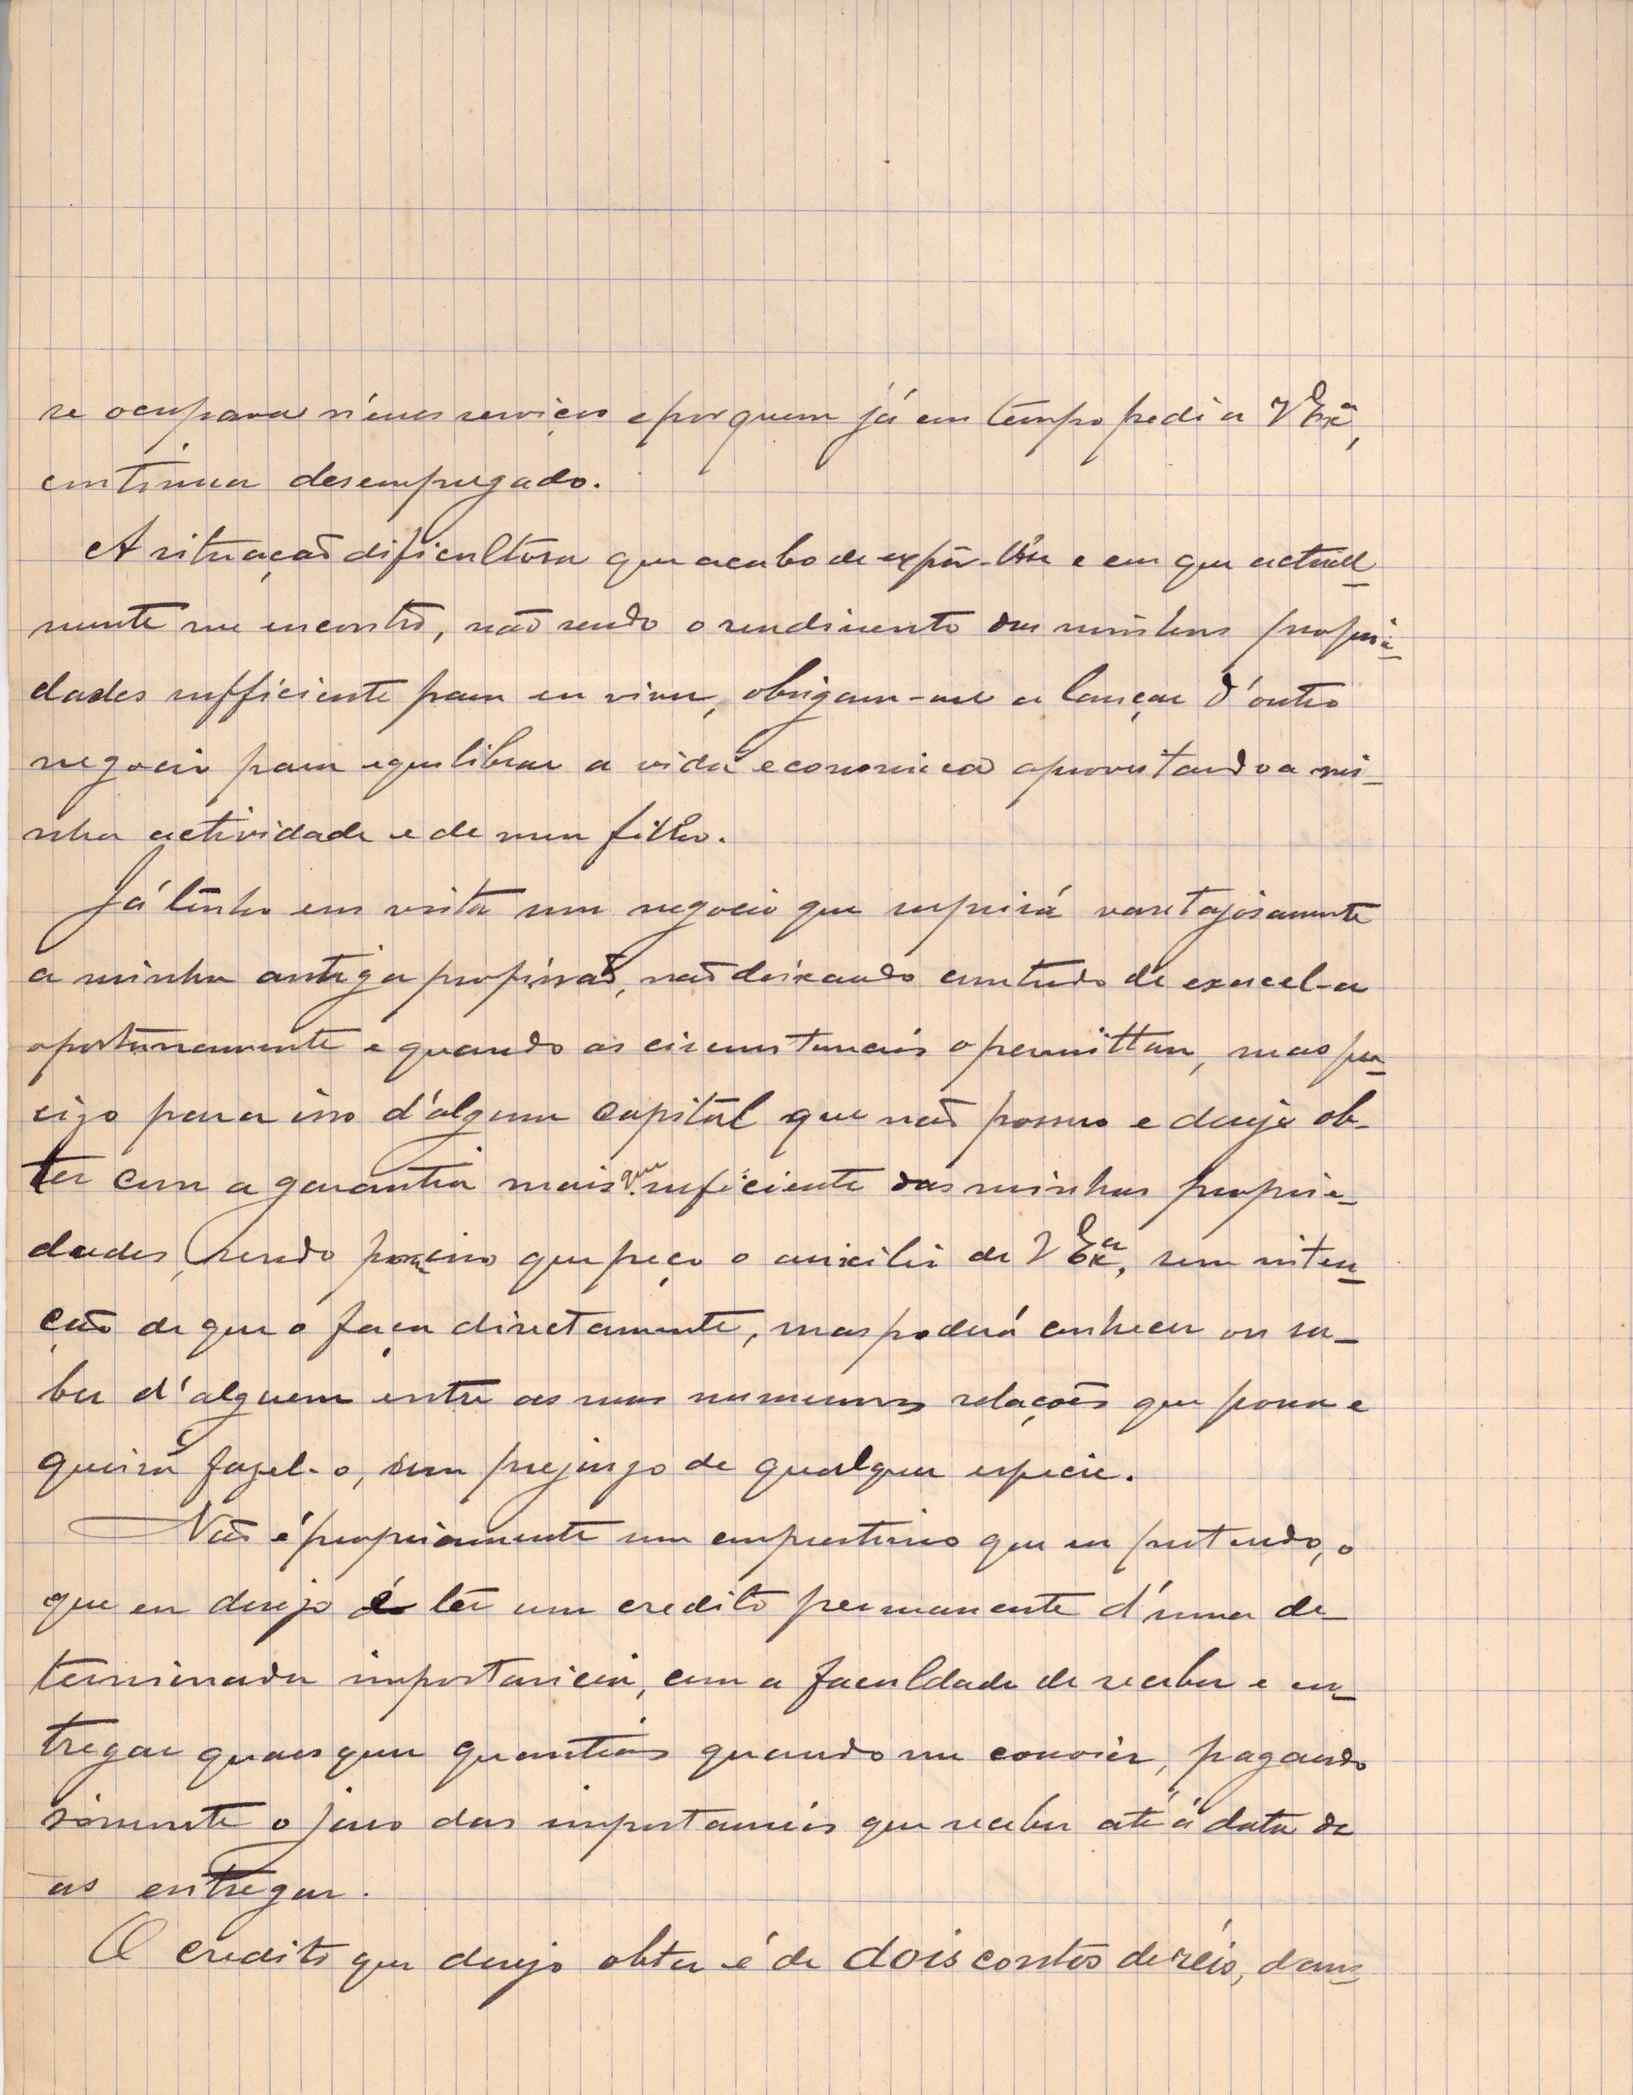 se occupava n'esses serviços e por quem já em tempo pedi a V Exª,
continua desempregado.
A situação dificultosa que acabo de expôr-lhe e em que actual-
mente me encontro, não sendo o rendimento das minhas proprie-
dades sufficiente para eu viver, obrigam-me a lançar d'outro
negocio para equilibrar a vida economica aproveitando a mi-
nha actividade e de meu filho.
Já tenho em vista um negocio que suprirá vantajosamente
a minha antiga profissão, não deixando comtudo de exercel-a
oportunamente e quando as circumstancias o permittam, mas pre-
cizo para isso d'algum capital que não possuo e desejo ob-
ter com a garantia mais que suficiente das minhas proprie-
dades, sendo por isso que peço o auxilio de V Exª, sem inten-
ção de que o faça directamente, mas poderá conhecer ou sa-
ber d'alguem entre as suas numerosas relações que possa e
queira fazel-o, sem prejuizo de qualquer especie.
Não é propriamente um emprestimo que eu pretendo, o
que eu desejo é ter um credito permanente d'uma de-
terminada importancia, com a faculdade de receber e en-
tregar quaesquer quantias quando me convier, pagando
sómente o juro das importancias que receber até á data de
as entregar.
O credito que desejo obter é de dois contos de réis, dan-